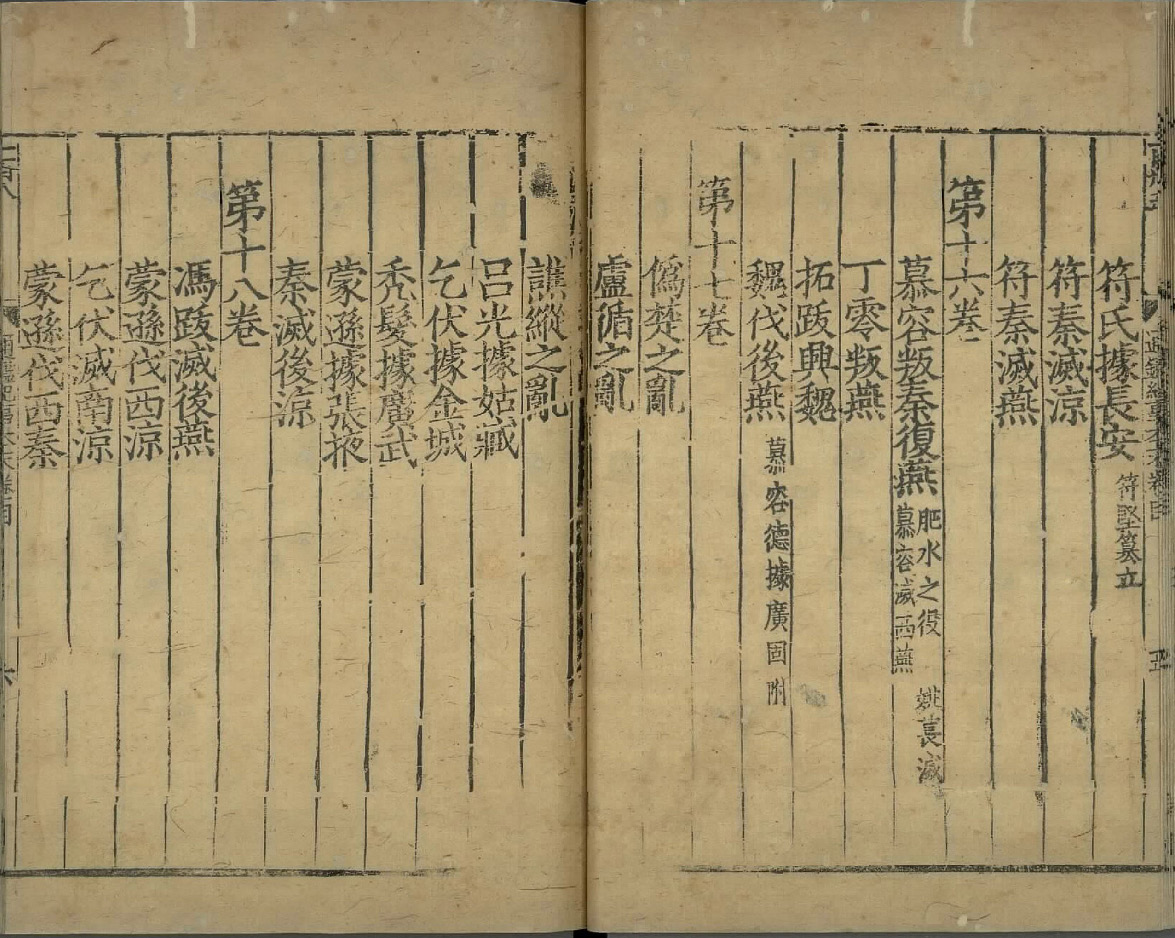 符氏據長安 符堅篡立
符秦滅涼
符秦滅燕
第十六卷
慕容叛秦復燕 肥水之役 姚萇滅
慕容滅西燕
丁零叛燕
拓跋興魏
魏伐後燕 慕容德據廣固附
第十七卷
偽楚之亂
盧循之亂
譙縱之亂
呂光據姑臧
乞伏據金城
禿髮據廣武
蒙遜據張掖
秦滅後涼
第十八卷
馮跋滅後燕
蒙遜伐西涼
乞伏滅南涼
蒙遜伐西秦
六